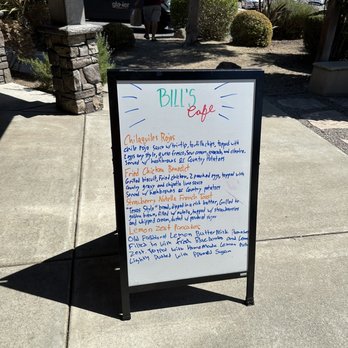 BILL'S
Cafe
Chilaquiles Rojos
Chile Rojo Sauce w/ tri-tip, tortilla chips, topped with
Eggs any style, queso fresco, sour cream, avocado, and cilantro.
Served w/ hashbrowns or Country Potatoes
Fried Chicken Benedict
Grilled biscuit, Fried chicken, 2 poached egg, topped with
Country gravy and chipotle lime sauce
Served w/ hashbrowns or Country potatoes
Strawberry Nutella French Toast
"Texas Style" bread, dipped in a rich batter, Grilled to
golden brown, filled w/ nutella, topped w/ strawberries
and whipped cream, dusted w/ powdered sugar
Lemon Zest Pancakes
Old Fashioned Lemon Buttermilk Pancakes
Filled in with Fresh Blueberries and Lemon
Zest. Topped with Homemade Lemon Butter
Lightly Dusted with Powdered Sugar